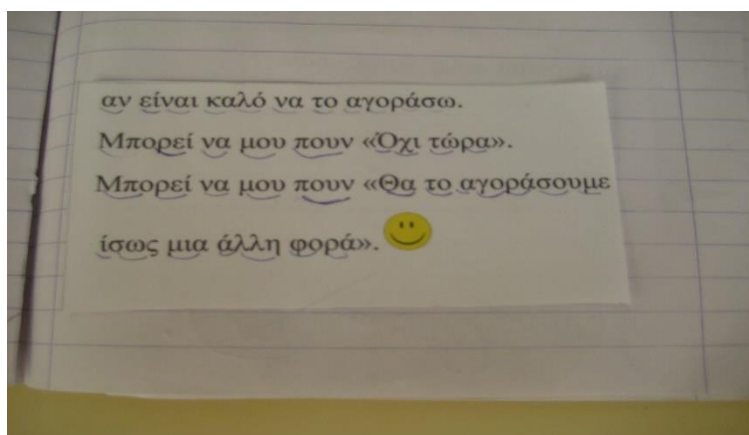 αν είναι καλό να το αγοράσω.
Μπορεί να μου πουν «Όχι τώρα».
Μπορεί να μου πουν «Θα το αγοράσουμε
ίσως μια άλλη φορά».